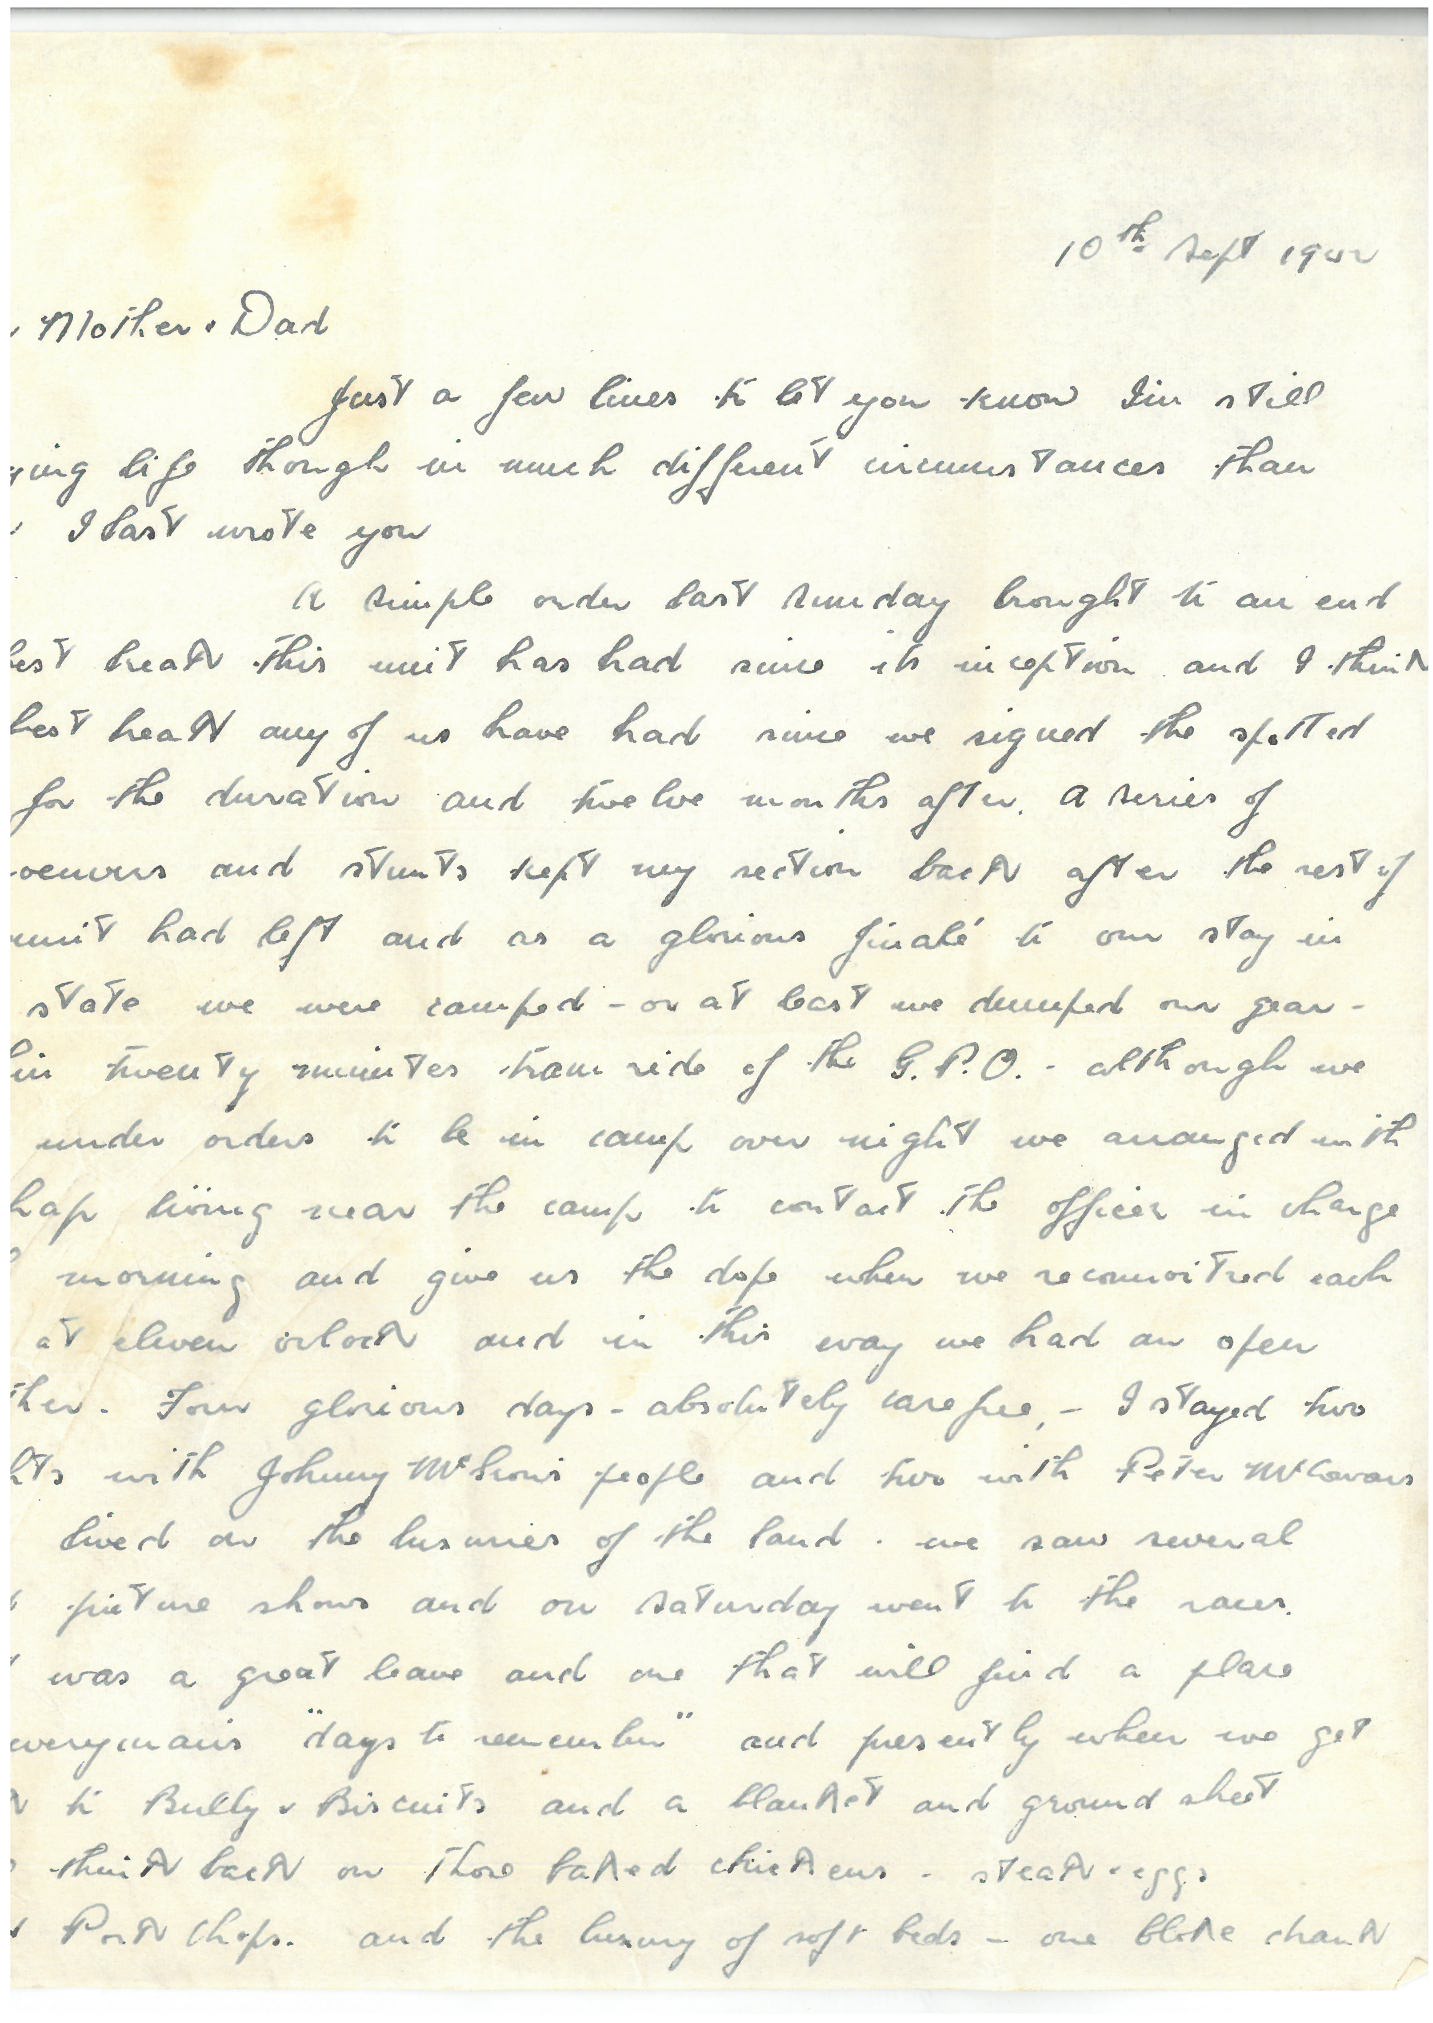 10th Sept 1942
Mother & Dad
Just a few lines to let you know I'm still
ying life though in much different circumstances than
I last wrote you
A simple order last Sunday brought to an end
best break this unit has had since its inception and I think
best break any of us have had since we signed the spotted
for the duration and twelve months after. A series of
oeuvres and stunts kept my section back after the rest of
unit had left and as a glorious finalé to our stay in
state we were camped - or at least we dumped our gear -
hin twenty minutes tram ride of the G.P.O. - although we
under orders to be in camp over night we arranged with
hap living near the camp to contact the officer in charge
morning and give us the dope when we reconnoitred each
at eleven oclock and in this way we had an open
ther. Four glorious days - absolutely carefree, - I stayed two
hts with Johnny people and two with Peter
lived on the luxuries of the land. we saw several
picture shows and on Saturday went to the races.
was a great leave and one that will find a place
everyman's "days to remember" and presently when we get
k to Bully & Biscuits and a blanket and ground sheet
think back on those baked chickens - steak & eggs
Pork Chops. and the luxury of soft beds - one bloke drank